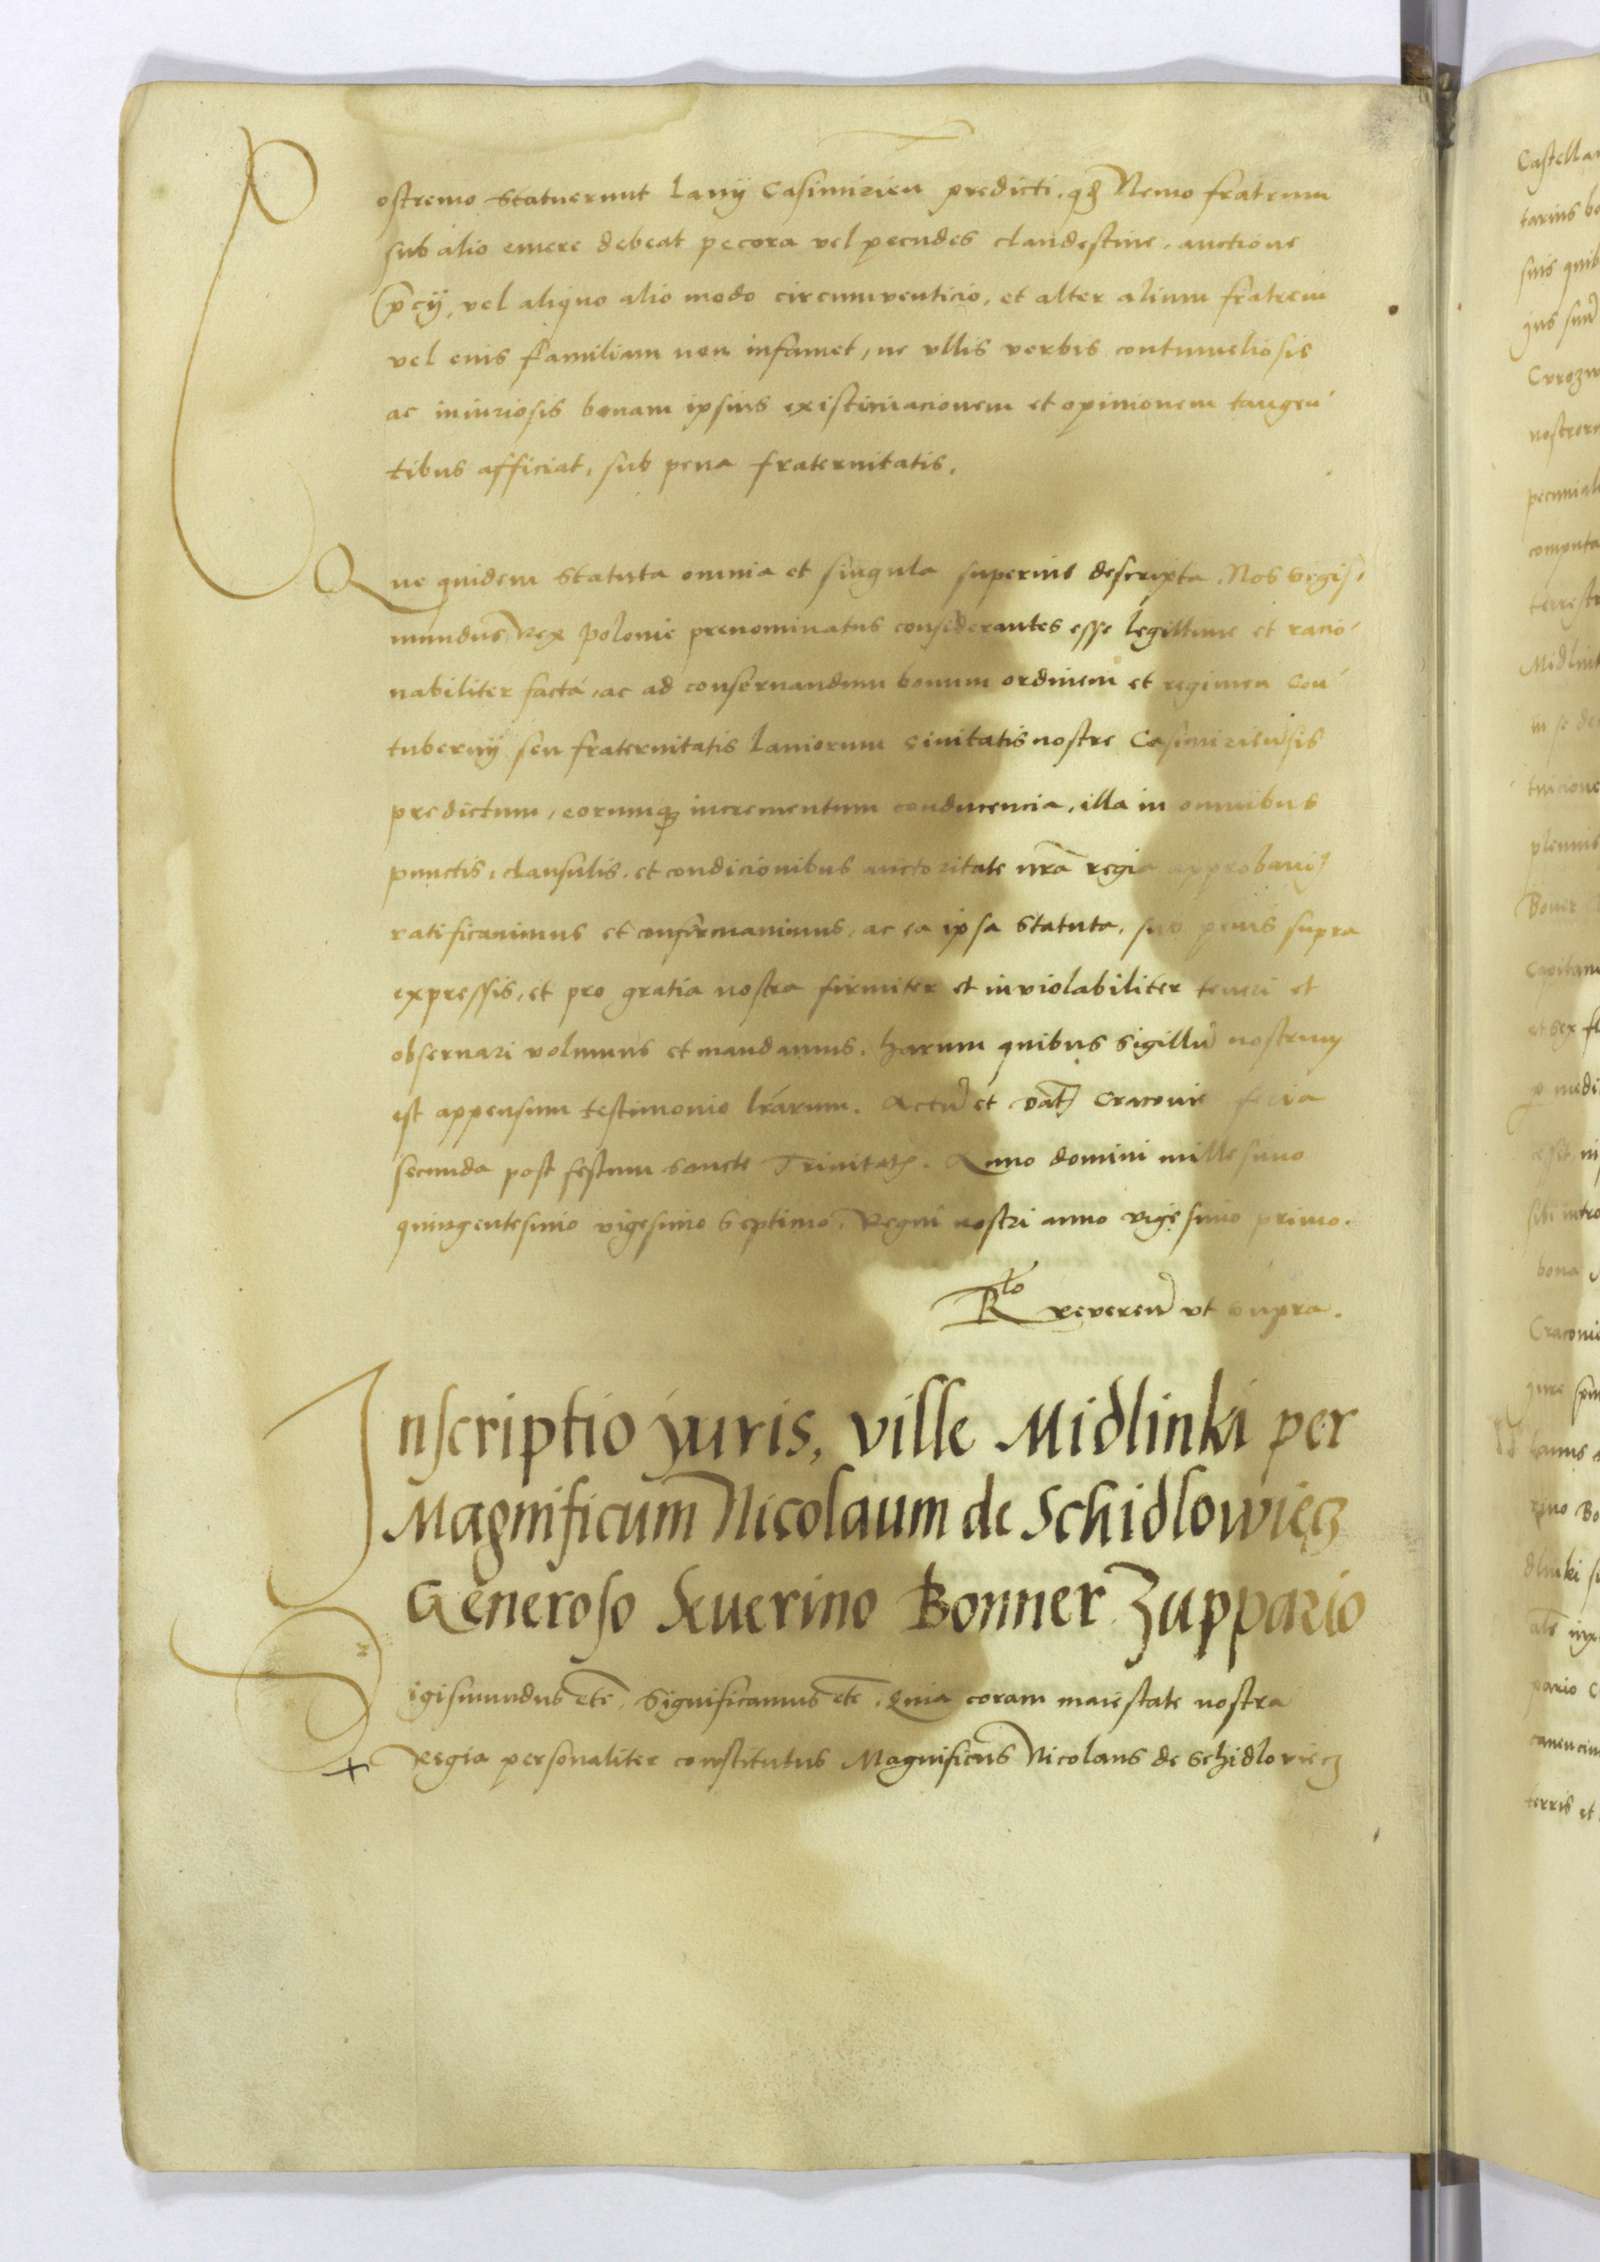 Postremo statuerunt Lanij Casimirien predicti, qd Nemo fratrum
sub alio emere debeat pecora vel pecudes clandestine, auctione
p̄cij, vel aliquo alio modo circumventicio, et alter alium fratrem
vel eius familiam non infamet, ne vllis verbis contumeliosis
ac iniuriosis bonam ipsius existimacionem et opinionem tangen
tibus afficiat, sub pena fraternitatis.
Que quidem statuta omnia et singula superius descripta, Nos Sigis,
mundus Rex Polonie prenominatus considerantes esse legittime et racio
nabiliter facta, ac ad conservandum bonum ordinem et regimen Con
tubernij seu fraternitatis Laniorum civitatis nostre Casimiriensis
predictum, eorumq incrementum conducencia, illa in omnibus
punctis, clausulis, et condicionibus auctoritate nrā regia approbavim9
ratificavimus et confirmavimus, ac ea ipsa statuta, sub penis supra
expressis, et pro gratia nostra firmiter et inviolabiliter teneri et
observari volumus et mandamus, harum quibus sigillū nostrum
est appensum testimonio lrārum. Actū et Dat Cracovie feria
secunda post festum sancte Trinitat. Anno domini millesimo
quingentesimo vigesimo septimo, Regni nostri anno vigesimo primo.
Rto reveren vt supra.
Inscriptio yuris, ville Midlinki per
Magnificum Nicolaum de Schidlowiecz
Generoso Seuerino Bonner Zuppario
Sigismundus etc. Significamus etc. Quia coram maiestate nostra
Regia personaliter constitutus Magnificus Nicolaus de Schidloviecz
Castella
tarius bo
suis quib
ius
nostror
pecunial
computa
terrestr
Midlink
in se de
tuicione
plenius
Boner
Capitan
et sex fl
p medi
esset
sibi intro
bona
Cracovie
jure
lanus
rino Bo
dlinki

pario C

terris et